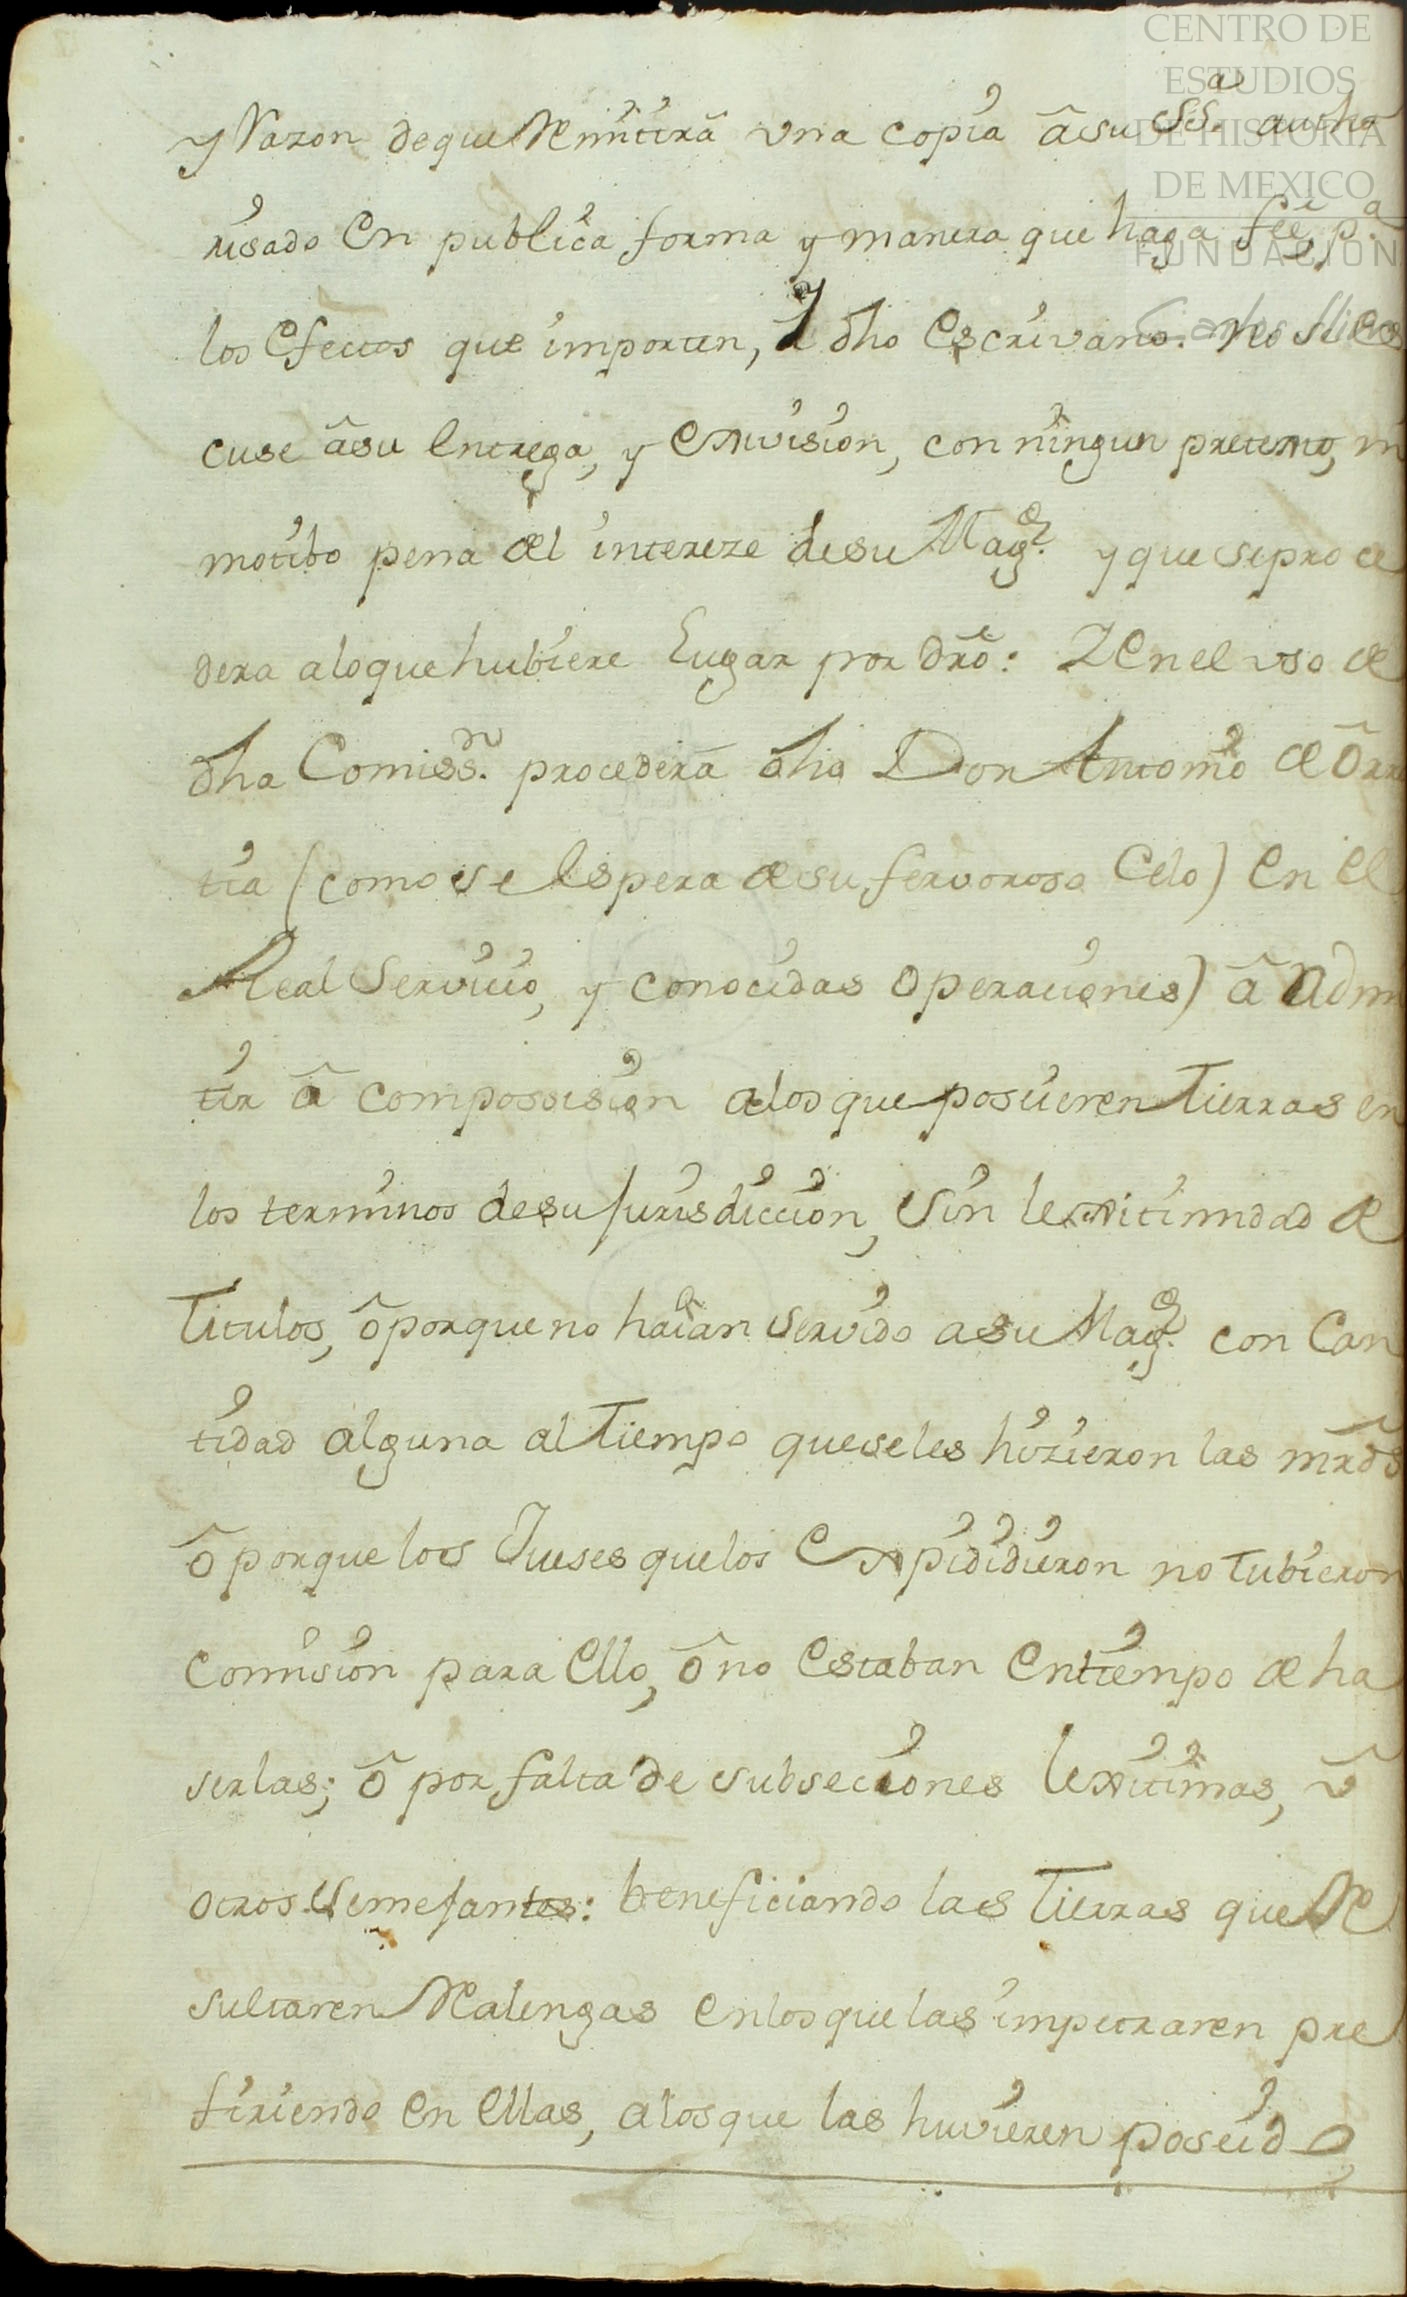 CENTRO DE
ESTUDIOS
DE HISTORIA
DE MEXICO
FUNDACION
y Razon deque Remitirâ vna copia âsu SSª autho
risado En publica forma y manera que haga feê, pª
los Efectos que importen, Y dho Escrivano no Se es
cuse âsu Entrega, y Exivision, con ningun pretexto, ni
motibo pena del intereze desu Magd. y que seproce
dera aloque hubiere Lugar por dro: Y Enel vso de
dha Comissn. procederâ dho Don Antonio de Orr
tia (como se Espera desu fervoroso Celo) En el
Real Servicio, y conocidas operaciones) â Admi
tir â compossision alos que posuieren Tierras en
los terminos desu Jurisdiccion, Sin lexitimidad de
Titulos, ô porque no haian servido asu Magd. con Can
tidad alguna al Tiempo queseles hizieron las mrds
ô porque los Jueses quelos Expididieron no Tubieron
Comision para Ello, ô no Estaban Entiempo de ha
serlas; ô por falta de subseciones lexitimas, v
otros Semejantes: beneficiando las Tierras que Re
sultaren Realengas Enlos que las impetraren pre
firiendo En Ellas, alos que las huvieren poseido